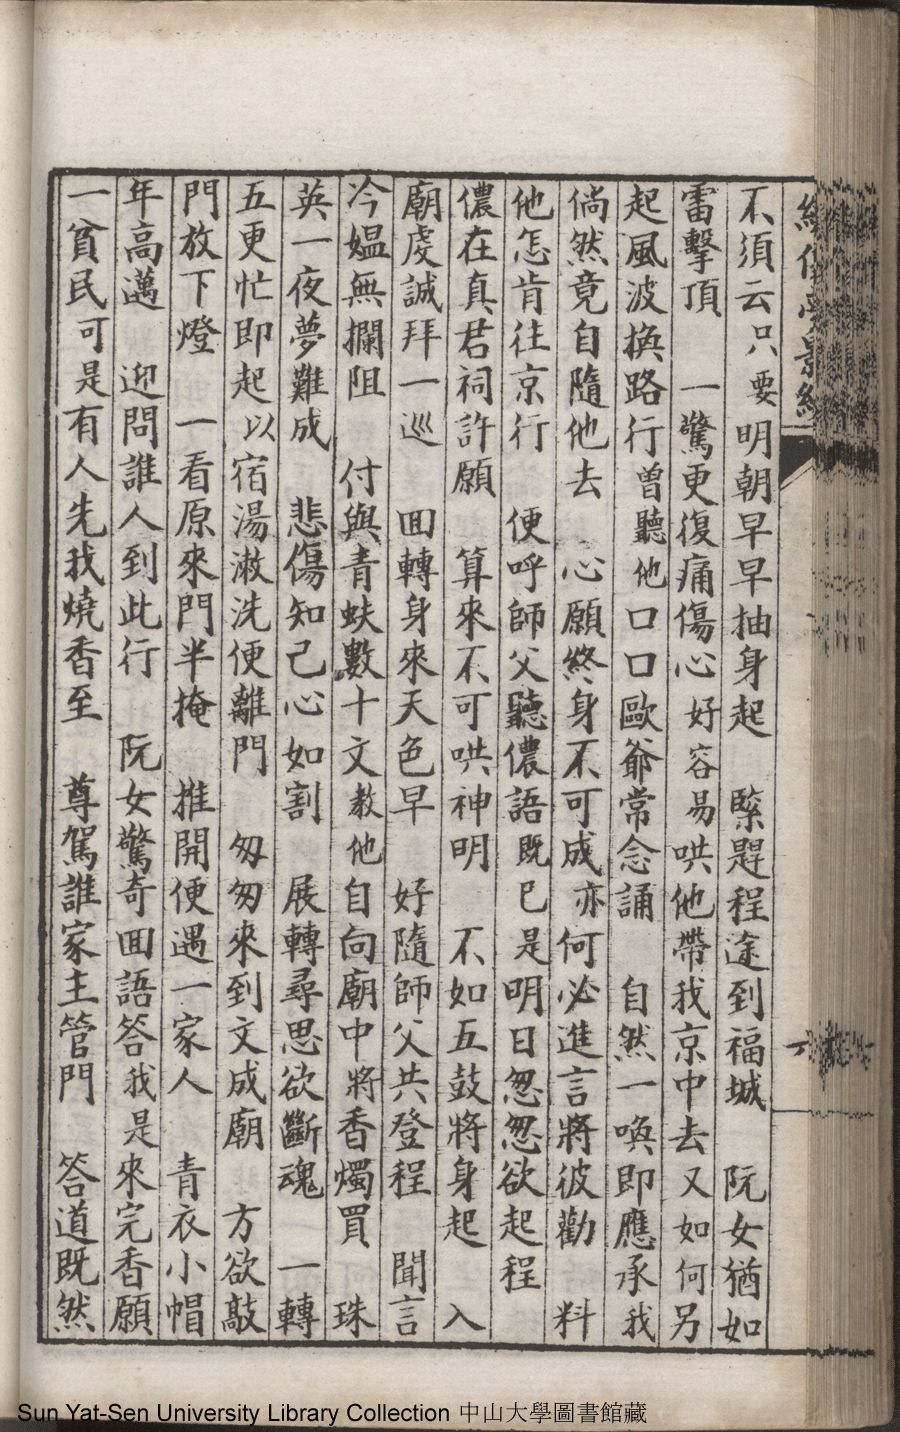 不須云只要明朝早早抽身起　緊趕程途到福城　阮女猶如
雷擊頂　一驚更復痛傷心好容易哄他帶我京中去又如何另
起風波換路行曾聽他口口歐爺常念誦　自然一喚即應承我
倘然竟自隨他去　心願終身不可成亦何必進言將彼勸　料
他怎肯往京行　便呼師父聽儂語既已是明日怱怱欲起程
儂在真君祠許願　算來不可哄神明　不如五鼓將身起　入
廟虔誠拜一巡　囬轉身來天色早　好隨師父共登程　聞言
今媼無攔阻　付與青蚨數十文教他自向廟中將香燭買　珠
英一夜夢難成　悲傷知己心如割　展轉尋思欲斷魂　一轉
五更忙即起以宿湯漱洗便離門　匆匆來到文成廟　方欲敲
門放下燈　一看原來門半掩　推開便遇一家人　青衣小帽
年高邁　迎問誰人到此行　阮女驚奇囬語答我是來完香願
一貧民可是有人先我燒香至　尊駕誰家主管門　答道既然
Sun Yat-Sen University Library Collection 中山大學圖書館藏